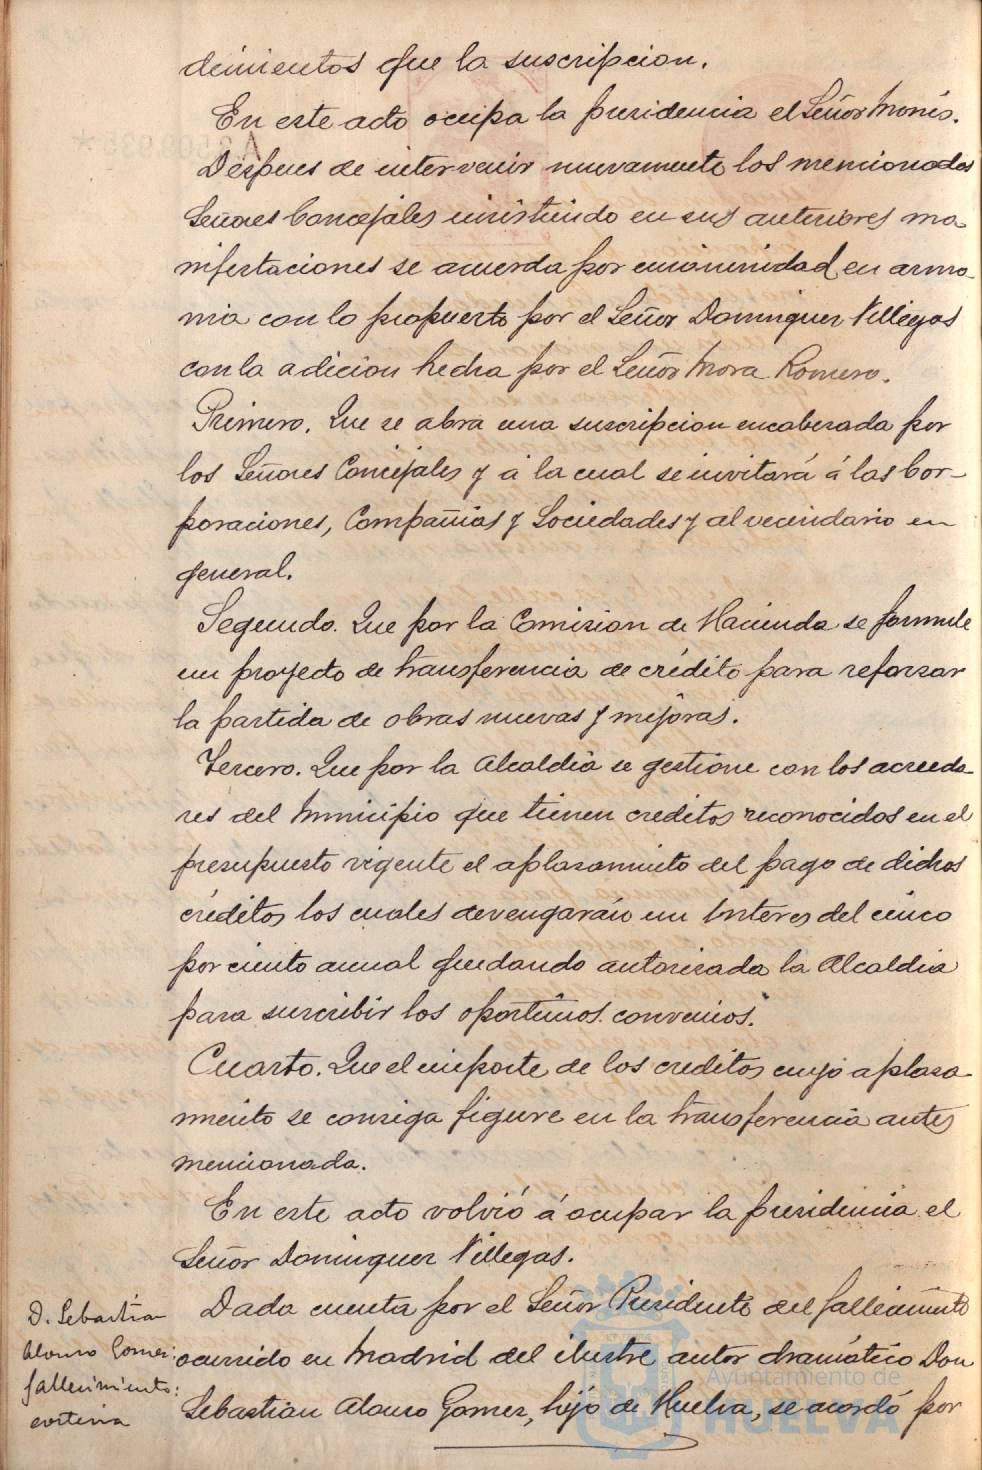 dimientos que la suscripcion.
En este acto ocupa la presidencia el Señor Monis.
Despues de intervenir nuevamente los mencionados
Señores Concejales insistiendo en sus anteriores ma
nifestaciones se acuerda por unanimidad en armo
nia con lo propuesto por el Señor Dominguez Villegas
con la adicion hecha por el Señor Mora Romero.
Primero. Que se abra una suscripcion encabezada por
los Señores Concejales y á la cual se invitará á las Cor-
poraciones, Compañias y Sociedades y al vecindario en
general.
Segundo. Que por la Comision de Hacienda se formule
un proyecto de transferencia de crédito para reforzar
la partida de obras nuevas y mejoras.
Tercero. Que por la Alcaldia se gestione con los acreedo-
res del Municipio que tienen creditos reconocidos en el
presupuesto vigente el aplazamiento del pago de dichos
créditos los cuales devengarán un Interes del cinco
por ciento anual quedando autorizada la Alcaldia
para suscribir los oportunos convenios.
Cuarto. Que el importe de los creditos cuyo aplaza-
miento se consiga figure en la transferencia antes
mencionada.
En este acto volvió á ocupar la presidencia el
Señor Dominguez Villegas.
D. Sebastian
Alonso Gomez:
fallecimiento:
Dada cuenta por el Señor Presidente del fallecimiento
ocurrido en Madrid del ilustre autor dramático Don
Sebastian Alonso Gomez, hijo de Huelva, se acordó por
Ayuntamiento de
HUELVA